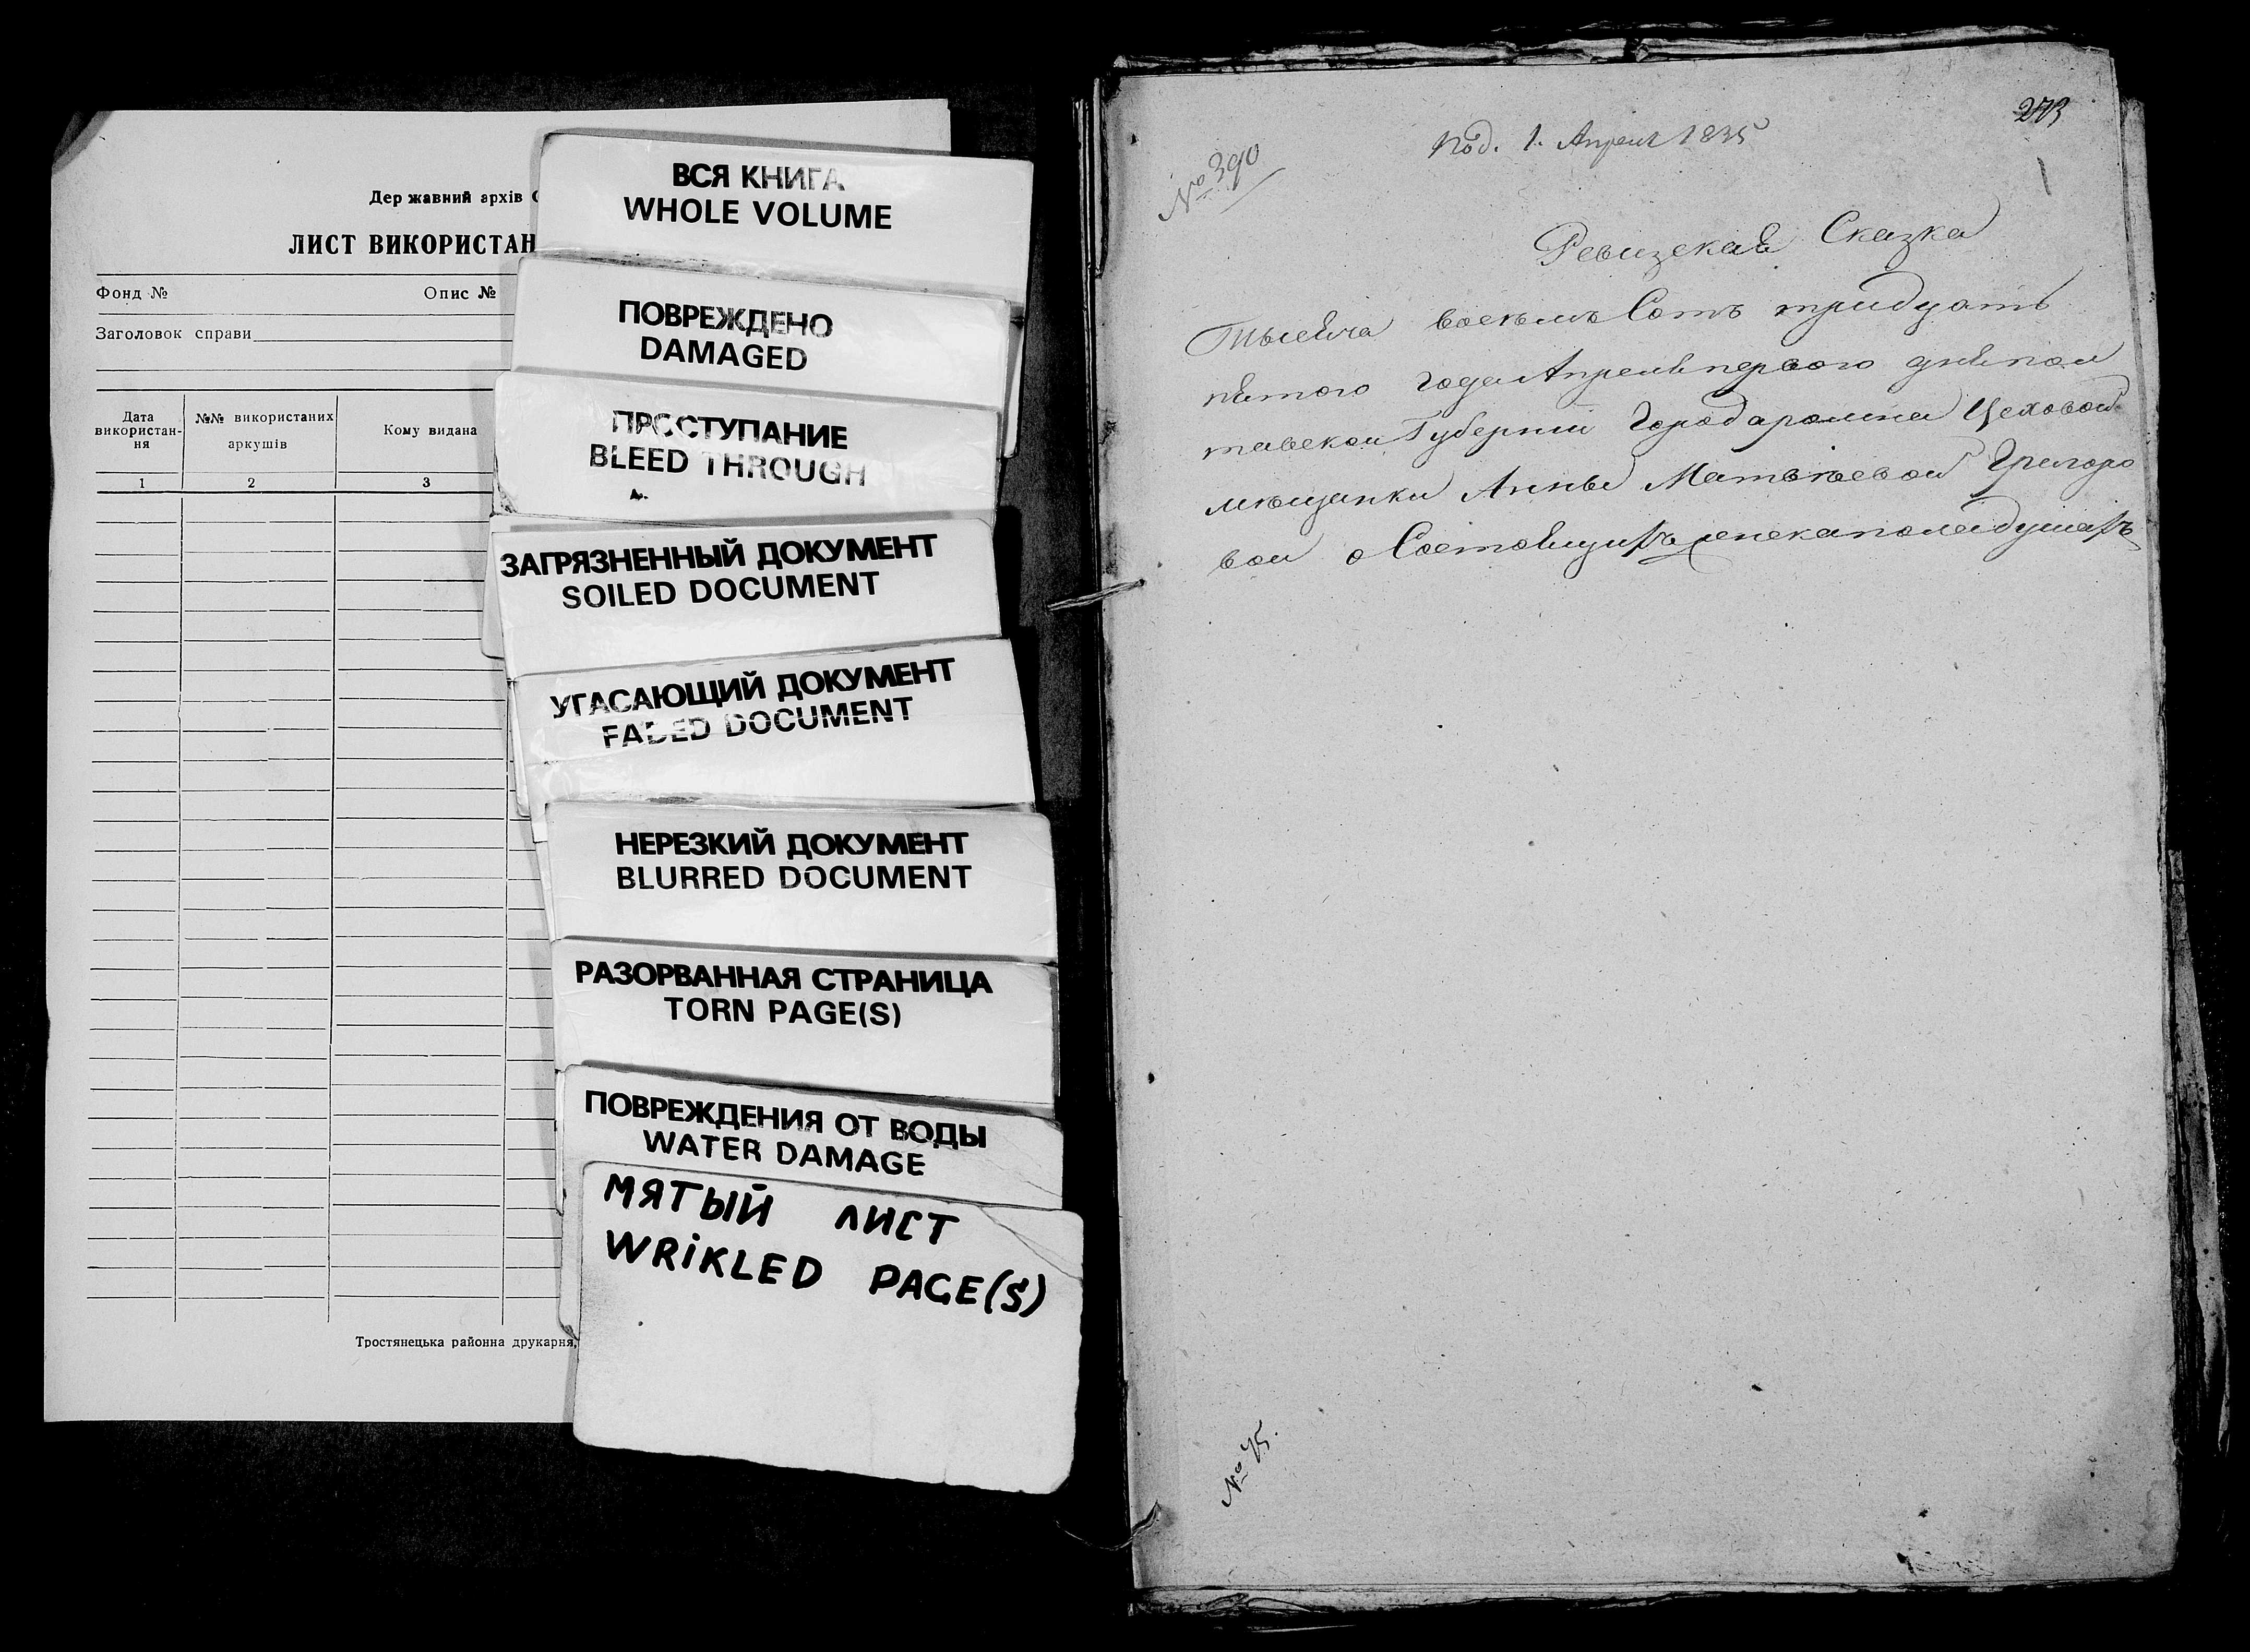 Державний архів С
ЛИСТ ВИКОРИСТАН
Фонд № Опис №
Заголовок справи
Дата використан-ня №№ використаних аркушів Кому видана
1 2 3
Тростянецька районна друкарня,
ВСЯ КНИГА
WHOLE VOLUME
ПОВРЕЖДЕНО
DAMAGED
ПРОСТУПАНИЕ
BLEED THROUGH
ЗАГРЯЗНЕННЫЙ ДОКУМЕНТ
SOILED DOCUMENT
УГАСАЮЩИЙ ДОКУМЕНТ
FADED DOCUMENT
НЕРЕЗКИЙ ДОКУМЕНТ
BLURRED DOCUMENT
РАЗОРВАННАЯ СТРАНИЦА
TORN PAGE(S)
ПОВРЕЖДЕНИЯ ОТ ВОДЫ
WATER DAMAGE
МЯТЫЙ ЛИСТ
WRiKLED PAGE(S)
273
Под. 1. Апреля 1835
№ 390
1
Ревизская Сказка
Тысяча восемь Сотъ тридцать
пятого года Апреля первого дня пол
тавской Губернии Города ромна Цеховой
мещанки Анны Матвеевой Григоро
вой о Состоящихъ мужеска пола душахъ
№ 75.